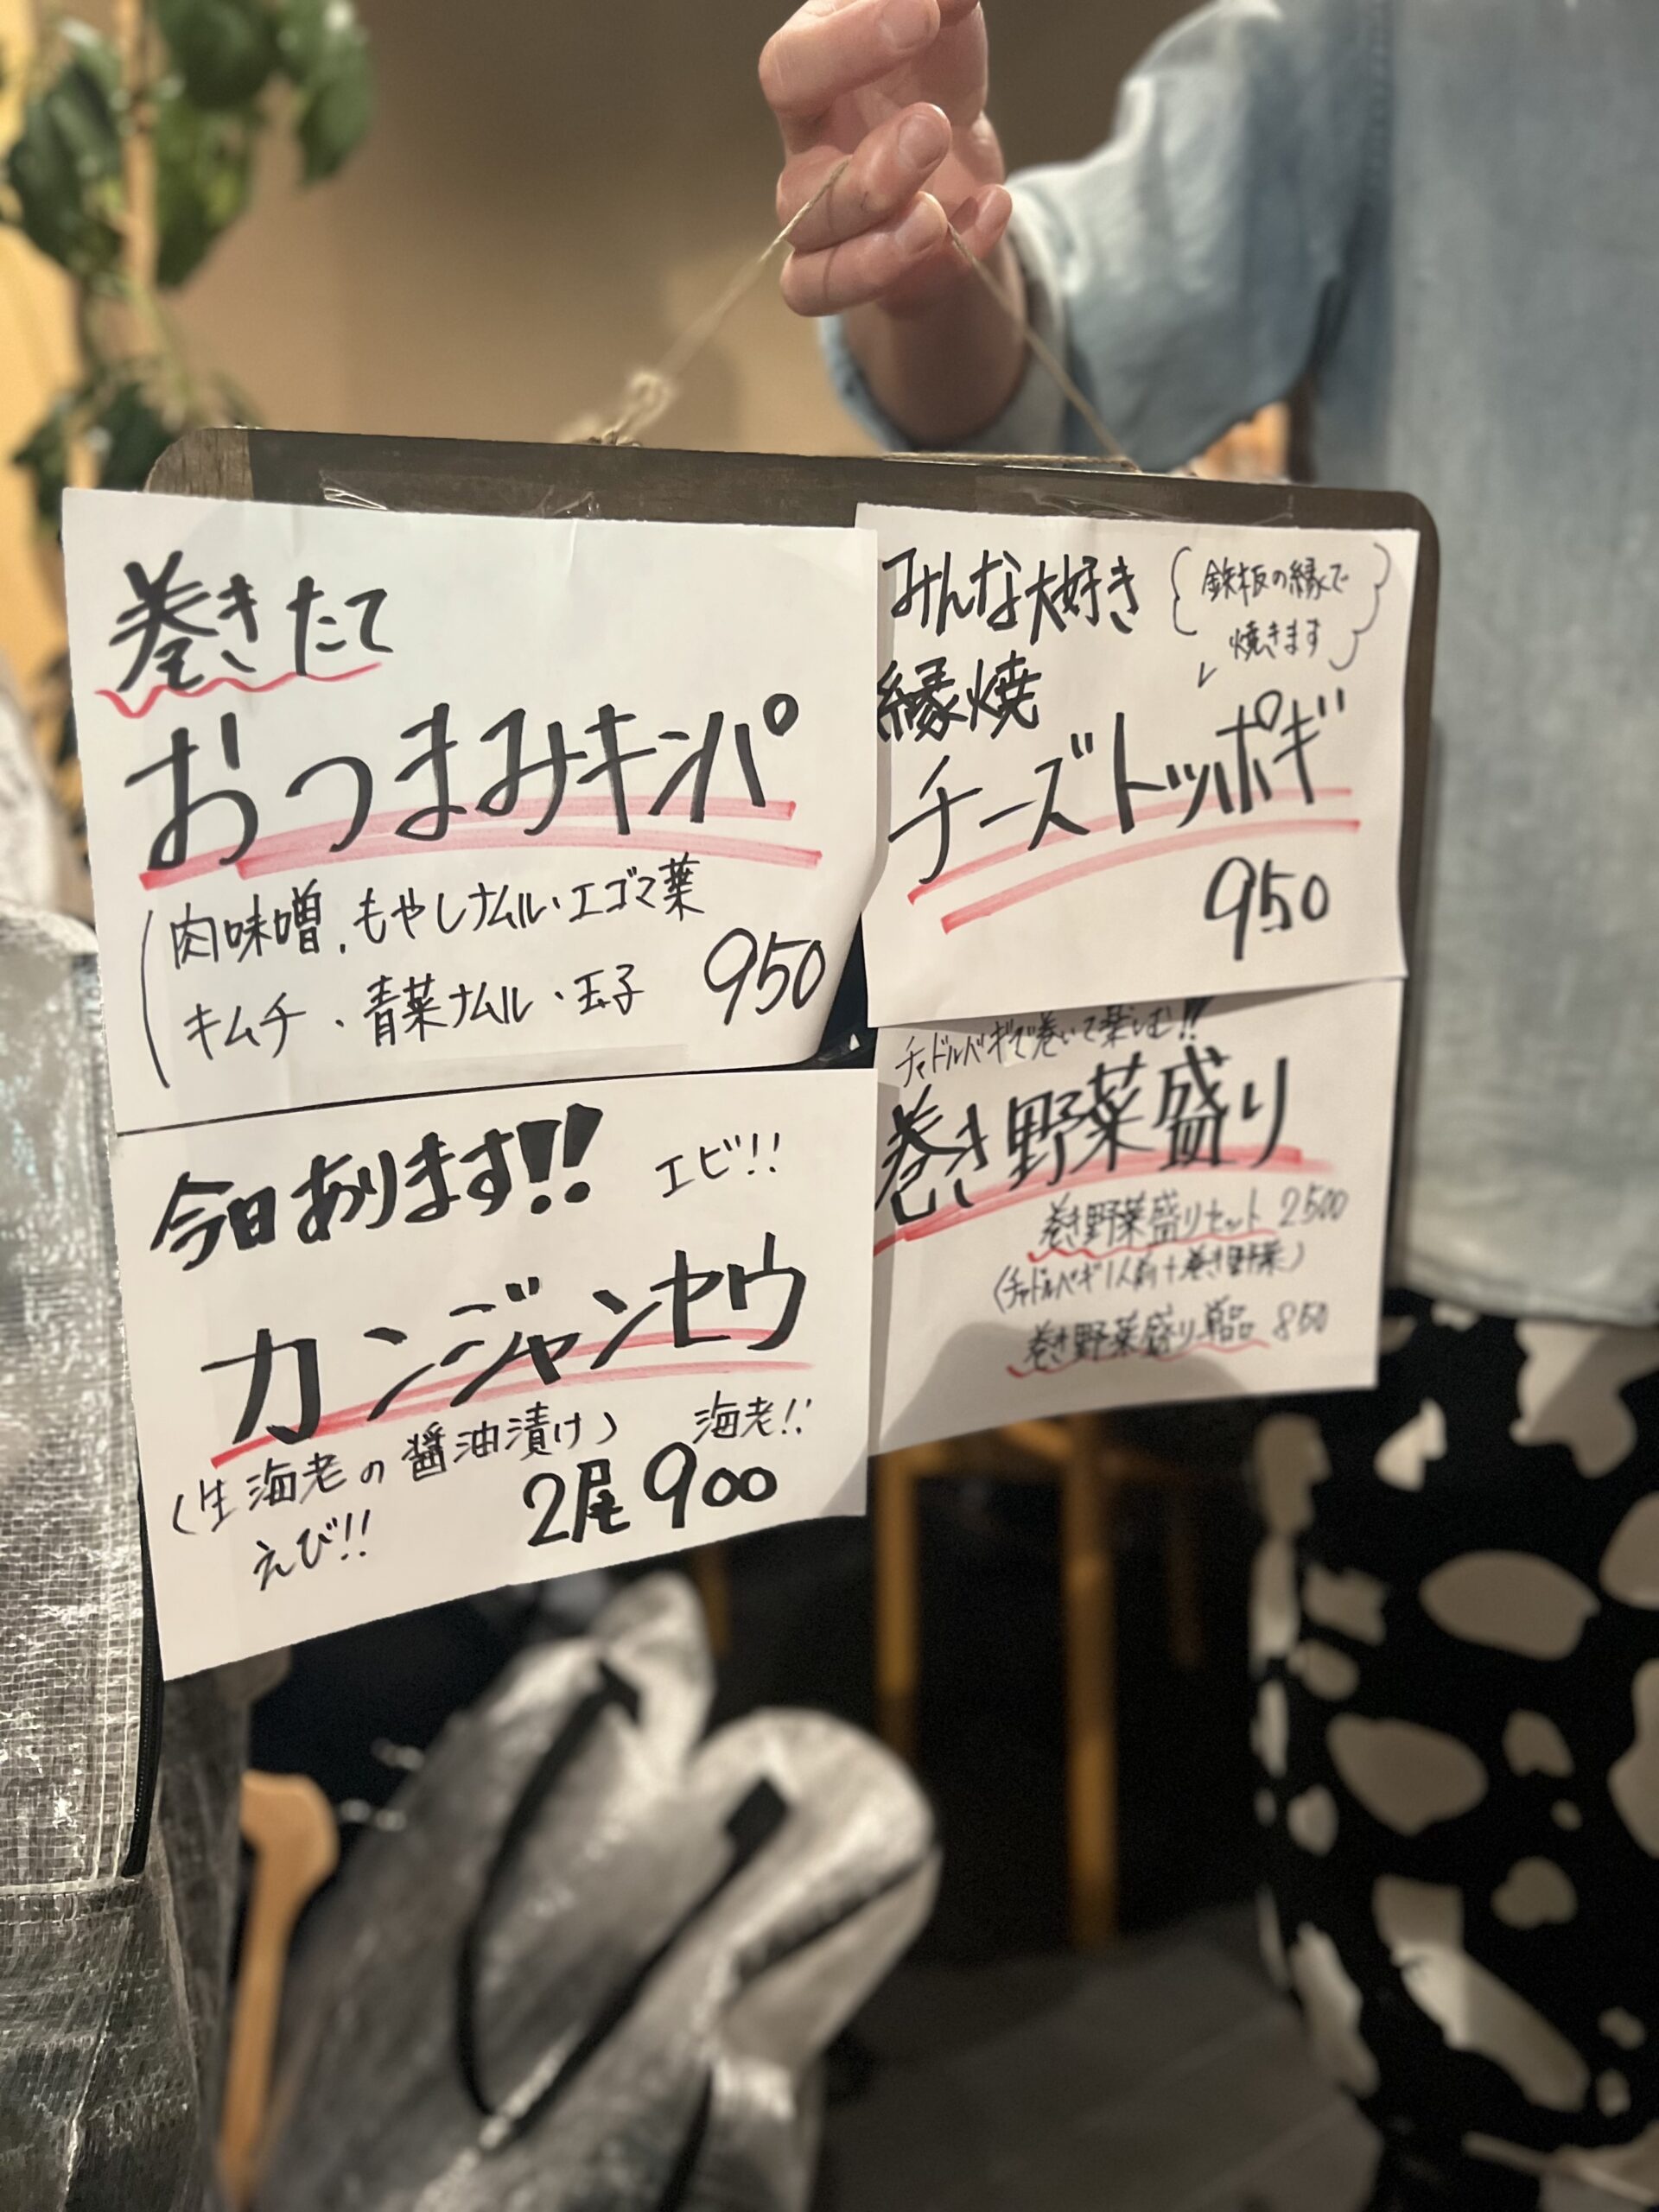 巻きたて
おつまみキンパ
(肉味噌、もやしナムル・エゴマ葉
キムチ・青菜ナムル・玉子 950
みんな大好き
(鉄板の縁で
焼きます)
縁焼
チーズトッポギ
950
今日あります!! エビ!!
カンジャンセウ
(生海老の醤油漬け) 海老!!
えび!! 2尾 900
チャドルバギで巻いて楽しむ!!
巻き野菜盛り
巻き野菜盛りセット 2500
(チャドルバギ1人前+巻き野菜)
巻き野菜盛り単品 850